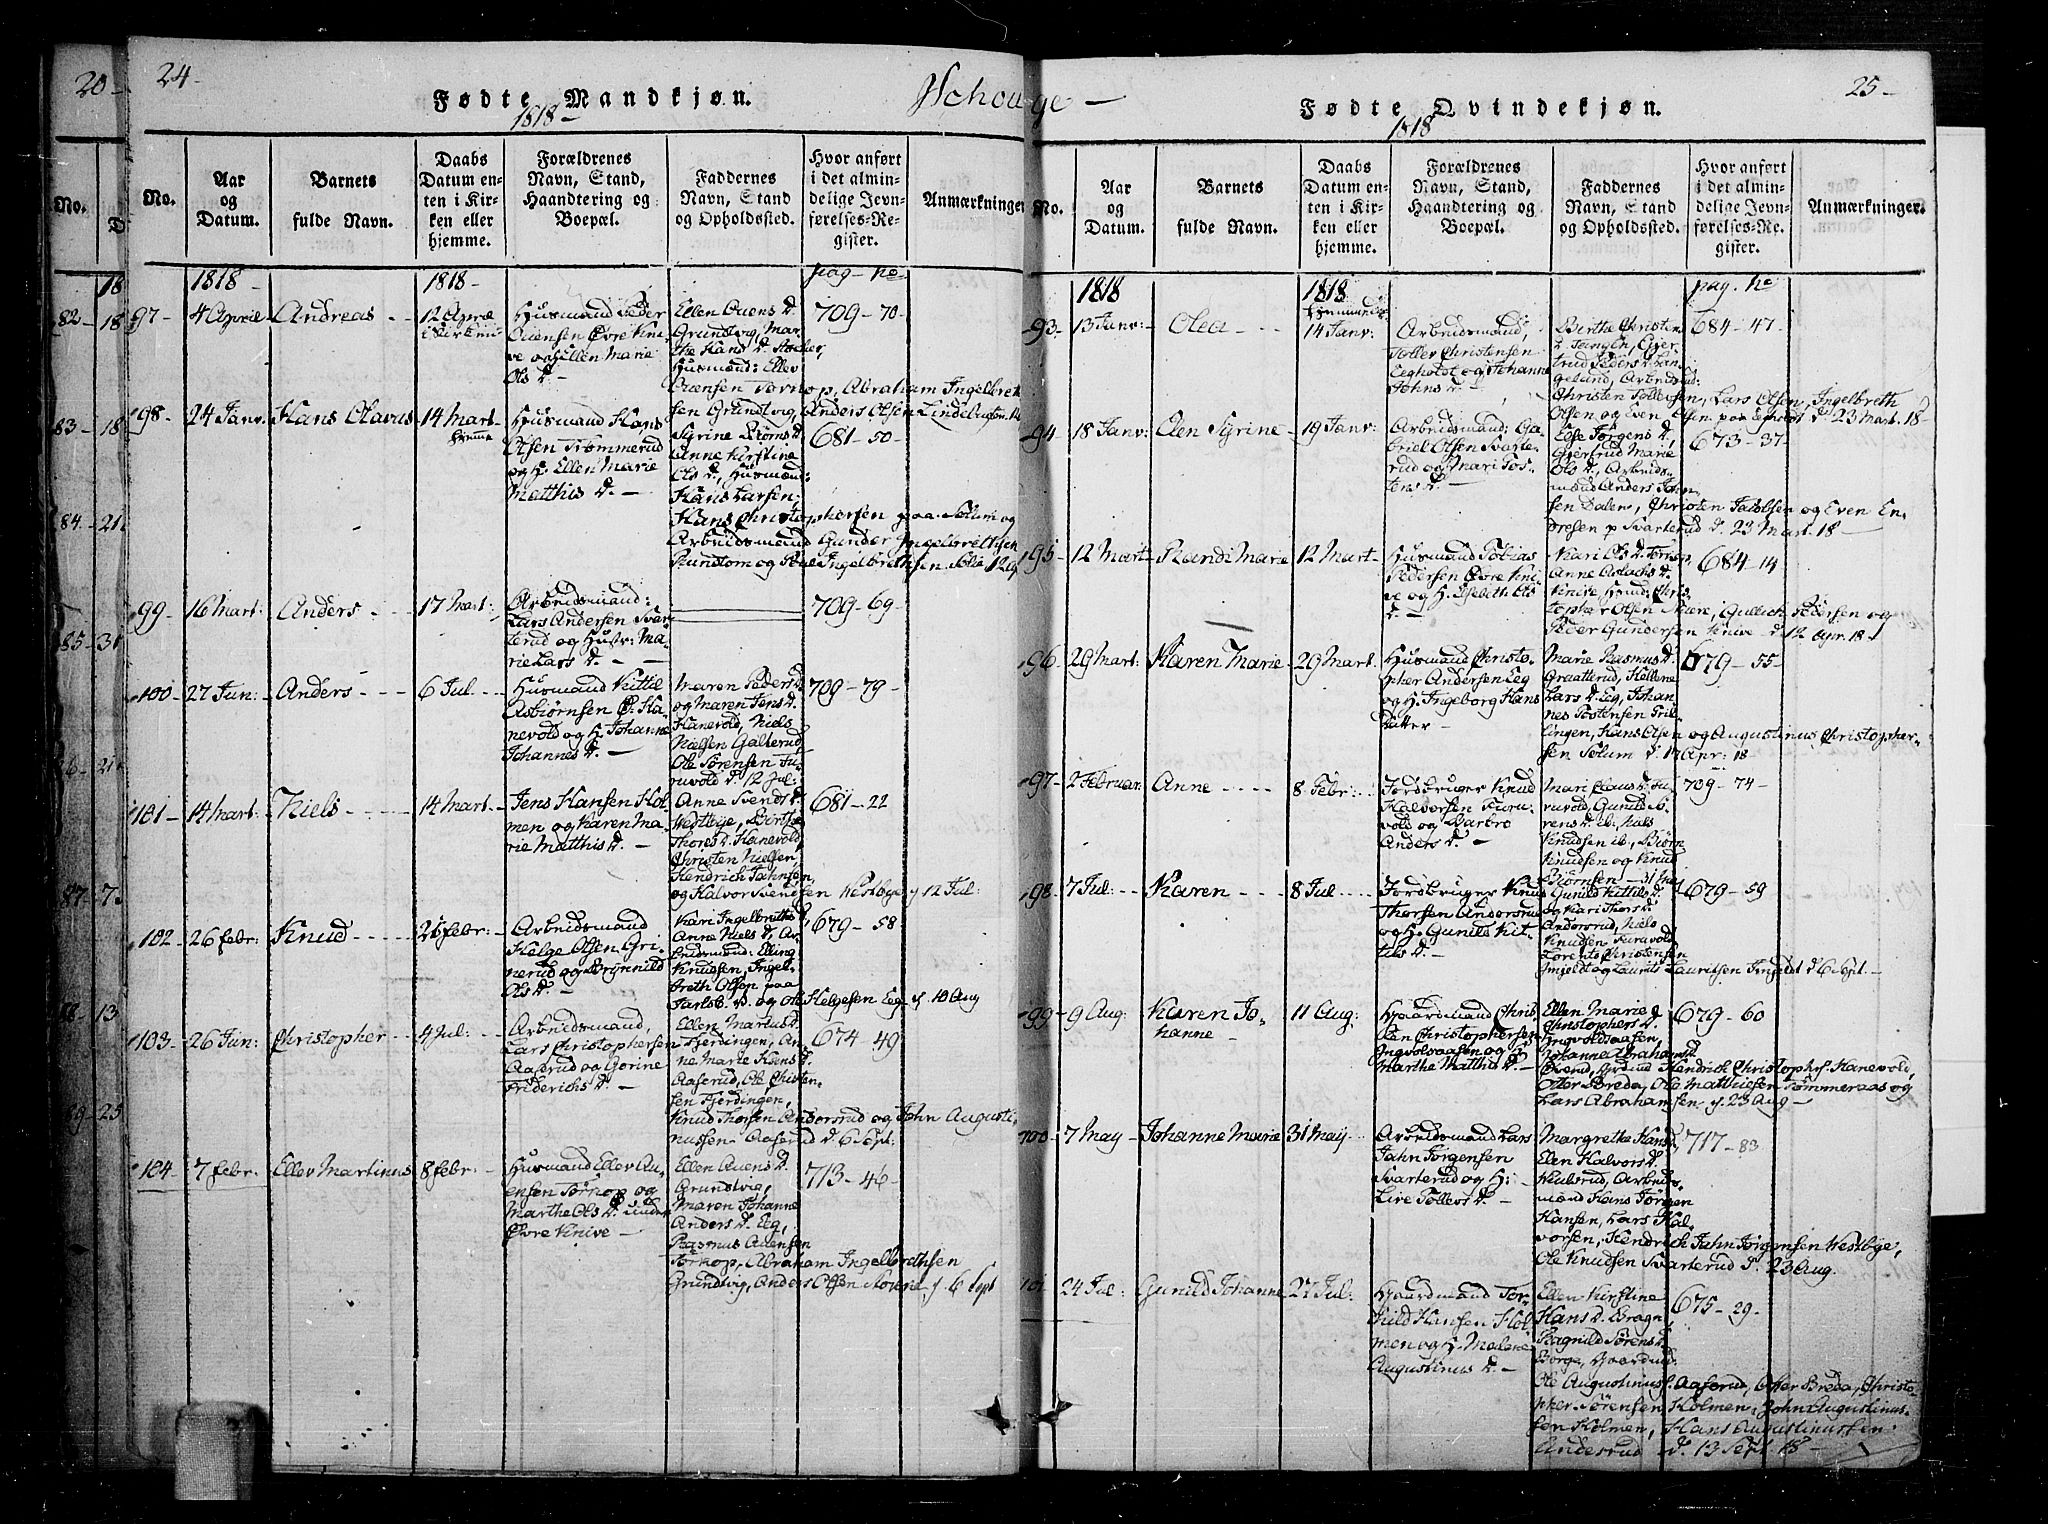 20-
24-
Fødte Mandkjøn.
1818-
Schouge-
No.
No.
Aar og Datum.
Barnets fulde Navn.
Daabs Datum enten i Kirken eller hjemme.
Forældrenes Navn, Stand, Haandtering og Boepæl.
Faddernes Navn, Stand og Opholdssted.
Hvor anført i det almindelige Jevnførelses-Register.
Anmærkninger
1818-
1818-
pag- No
97-
4 April-
Andreas
12 April
i Kirken
Husmand Peder
Auensen Øvre Kni-
ve og Ellen Marie
Ols D. -
Ellen Auens D.
Grundvig, Mar-
the Hans D.
Husmænd: Ellev
Auensen Tørkop, Abraham Ingelbreth
sen Grundvig, Anders Olsen
709-70-
98-
24 Janv:
Hans Olavus
14 Mart-
hjemme
Husmand Hans
Olsen Trømmerud
og H. Ellen Marie
Matthis D. -
Syrine Biørns D.
Anne Kirstine
Ols D., Husmænd:
Hans Larsen,
Hans Christophersen paa Solum og
Arbeidsmænd Gunder Ingelbrethsen
Rundtom og Ingelbrethsen
681-50-
99-
16 Mart:
Anders
17 Mart:
Arbeidsmand:
Lars Andersen Svar-
terud og Hustr: Ma-
rie Lars D. -
709-69-
100-
27 Jun:
Anders
6 Jul
Husmand Kittil
Asbiørnsen Ha-
nevold og H. Johanne
Johannes D. -
Maren Peders D.
og Maren Jens D.
Hanevold, Niels
Nielsen Galterud,
Ole Sørensen Fu-
ruvold d. 12 Jul:
709-79-
101-
14 Mart:
Niels
14 Mart-
Jens Hansen Hol-
men og Karen Ma-
rie Matthis D. -
Anne Svends D.
Westbye, Birthe
Thores D. Hanevold,
Christen Nielsen,
Hendrich Jahnsen,
og Halvor Svendsen Westbye d 12 Jul:
681-22
102-
26 febr:
Knud
26 febr:
Arbeidsmand
Helge Olsen Gri-
nerud og Brynnild
Ols D. -
Kari Ingelbreths D,
Anne Niels D. Ar-
beidsmænd: Elling
Knudsen, Ingel-
breth Olsen paa
Jarlsb. W. og Ole Helgesen Eeg d 10 Aug
679-58-
103-
26 Jun:
Christopher
4 Jul:
Arbeidsmand,
Lars Christophersen
Aaserud og Gorine
Friderichs D. -
Ellen Marcus D.
Fjerdingen, An-
ne Marie Hans D.
Aaserud, Ole Christen-
sen Fjerdingen,
Knud Thorsen Andorsrud og John Augusti-
nussen Aaserud d. 6 Sept:
674-49-
104-
7 febr:
Ellev Martinus
8 febr:
Husmand Ellev Au-
ensen Tørkop og
Marthe Ols D. under
Øvre Knive -
Ellen Auens D.
Grundvig,
Maren Johanne
Anders D. Eeg,
Rasmus Auensen
Tørkop, Abraham Ingelbrethsen
Grundvig, Anders Olsen d 6 Sept
713-46-
25-
Fødte Qvindekjøn.
1818
No.
Aar og Datum.
Barnets fulde Navn.
Daabs Datum enten i Kirken eller hjemme.
Forældrenes Navn, Stand, Haandtering og Boepæl.
Faddernes Navn, Stand og Opholdssted.
Hvor anført i det almindelige Jevnførelses-Register.
Anmærkninger.
1818
1818
pag. No
93-
13 Janv:
Olea
hjemmed.
14 Janv:
Arbeidsmand,
Tollev Christensen
Eegholdt og Johanne
Johns D. -
Birthe Christens
D. Tangen, Gjer-
trud Peders D. Lan-
geland, Arbeidsmd:
Christen Tollevsen, Lars Olsen, Ingelbreth
Olsen og Even Olsen paa Egholdt d 23 Mart. 18-
684-47-
94-
18 Janv:
Elen Syrine
19 Janv:
Arbeidsmand: Ga-
briel Olsen Svarte-
rud og Mari Tos-
tens D. -
Else Jørgens D.
Gjertrud Marie
Ols D., Arbeids-
mænd Anders
sen Dalen, Christen Jacobsen og Even En-
dresen p Svarterud d. 23 Mart. 18-
673-37-
95-
12 Mart-
Randi Marie
12 Mart-
Husmand Tobias
Pedersen Øvre Kni-
ve og H. Elsebeth Ols
D -
Kari Ols D.
Anne Aslachs D.
Knive Husmd: Chris-
topher Olsen Gullich Pedersen og
Peder Gundersen Knive d. 12 Apr. 18-
684-14
96-
29 Mart:
Karen Marie
29 Mart:
Husmand Christo-
pher Andersen Eeg
og H. Ingeborg Hans
datter -
Marie Rasmus D.
Graatterud, Hellene
Lars D. Eeg, Johan-
nes Tostensen Tril-
lingen, Hans Olsen og Augustinus Christopher-
sen Solum d 17 Apr: 18-
679-55-
97-
2 Februar:
Anne
8 Febr:
Jordbruger Knud
Halvorsen Furu-
vold og Barbro
Anders D. -
Mari Claus D. Fu-
ruvold, Gunild Sø-
rens D. ib, Niels
Knudsen ib, Biørn
Knudsen og Knud
Biørnsen - 31 Mai
709-74-
98-
7 Jul:
Karen
8 Jul
Jordbruger Knud
Thorsen Andorsrud
og H. Gunild Kit-
tils D. -
Gunild Kittils D.
og Kari Thors D.
Andorsrud, Niels
Knudsen Furavold
Lorents Christensen
Imjeldt og Laurits Lauritsen Imjeldt d 6 Sept. -
679-59
99-
9 Aug:
Karen Jo-
hanne -
11 Aug:
Gaardmand Chris-
ten Christophersen
Ingvolsaasen og H.
Marthe Matthis D. -
Ellen Marie
Christophers D.
Ingvoldsaasen,
Johanne Abrahams D
Hendrich Christophs. Hanevold,
Otter Breda, Ole Matthiesen Tømmeraas og
Lars Abrahamsen d. 23 Aug -
679-60
100-
7 May-
Johanne Marie
31 May
Arbeidsmand Lars
Jahn Jørgensen
Svarterud og H:
Live Tollevs D. -
Margrethe Hans D,
Elen Halvors D.
Wulsrud, Arbeids-
mænd Hans Jørgen
Hansen, Lars Hal-
vorsen, Hendrich Jahn Jørgensen Westbye,
Ole Knudsen Svarterud d. 23 Aug.
717-83
101-
24 Jul:
Gunild Johanne
27 Jul:
Gaardmand Tor-
kild Hansen Hol-
men og H. Malene
Augustinus D. -
Ellen Kirstine
Hans D. Bragn,
Ragnild Sørens D.
Borge, Gaardmd:
Ole Augustinuss. Aaserud, Otter Breda, Christo-
pher Sørensen Holmen, John Augustinus-
sen Holmen, Hans Augustinussen
d. 13 Sept 18-
675-29-